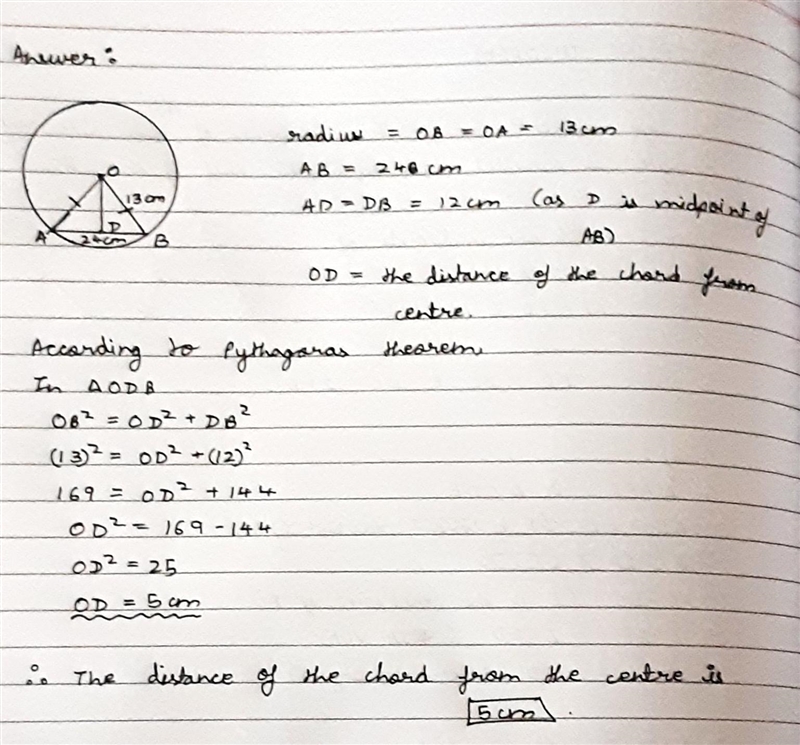 Answer:
O
13cm
A
D
24cm
B
radius = OB = OA = 13cm
AB = 24 cm
AD = DB = 12cm (as D is midpoint of
AB)
OD = the distance of the chord from
centre.
According to Pythagoras theorem,
In ΔODB
OB² = OD² + DB²
(13)² = OD² + (12)²
169 = OD² + 144
OD² = 169 - 144
OD² = 25
OD = 5cm
∴ The distance of the chord from the centre is
5cm.